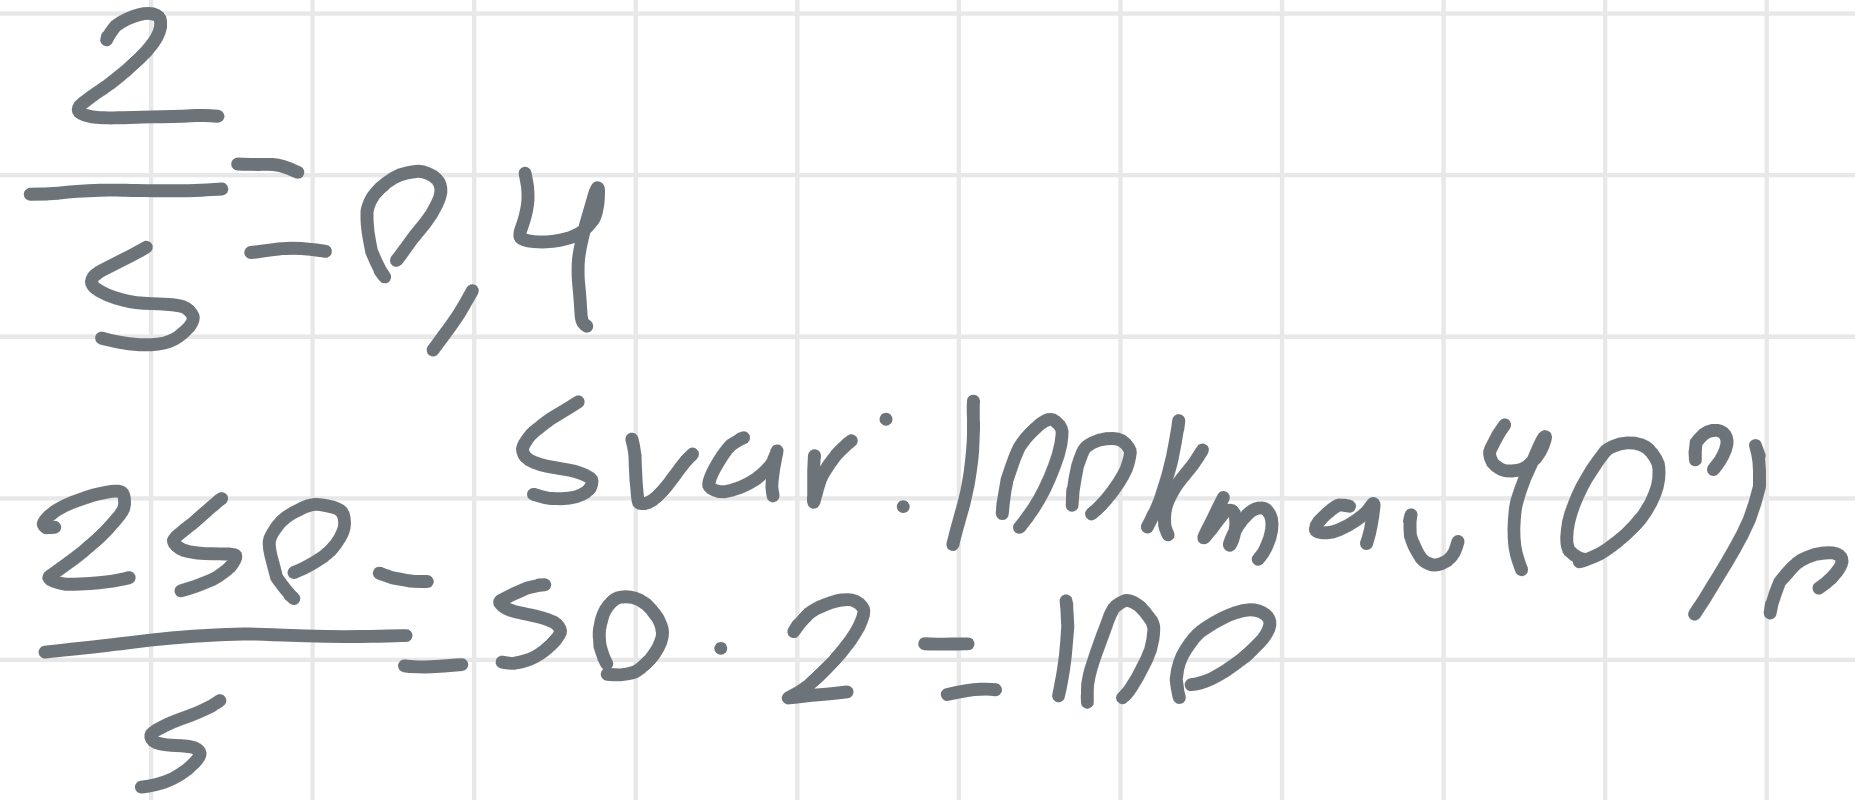 2/5 = 0,4
Svar: 100km av 40%
250/5 = 50 · 2 = 100